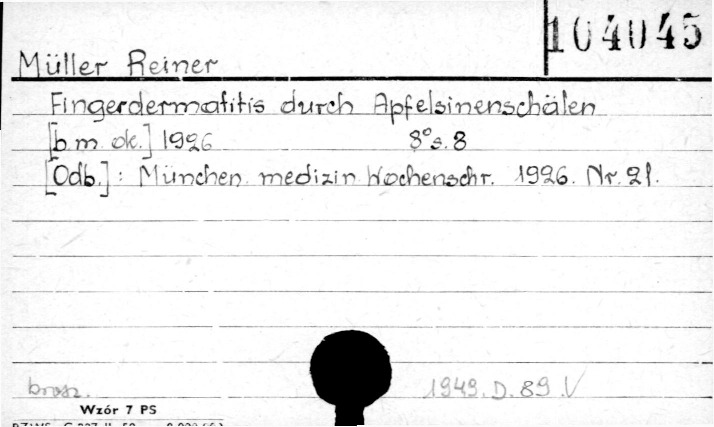 104045
Müller Reiner
Fingerdermatitis durch Apfelsinenschälen
[b.m. ok.] 1926 8° s. 8
[Odb.]: München. medizin Wochenschr. 1926. Nr. 21.
brosz. 1949. D. 89. V
Wzór 7 PS